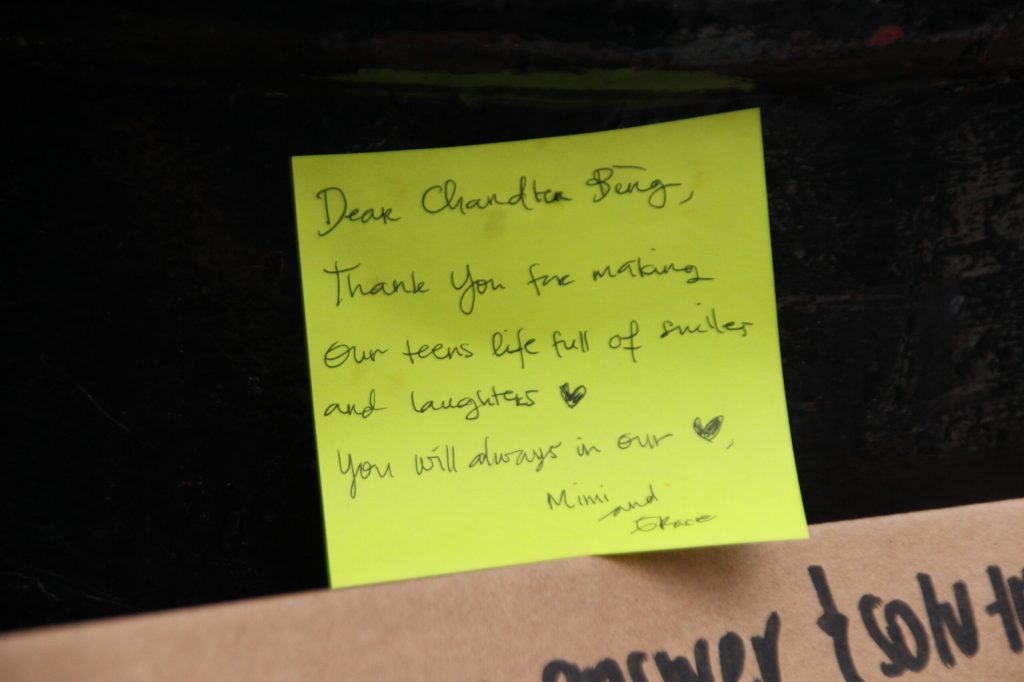 Dear Chandler Bing,
Thank You for making
our teens life full of smiles
and laughters ♥
You will always in our ♥,
Mimi
and
Grace
answer & solv